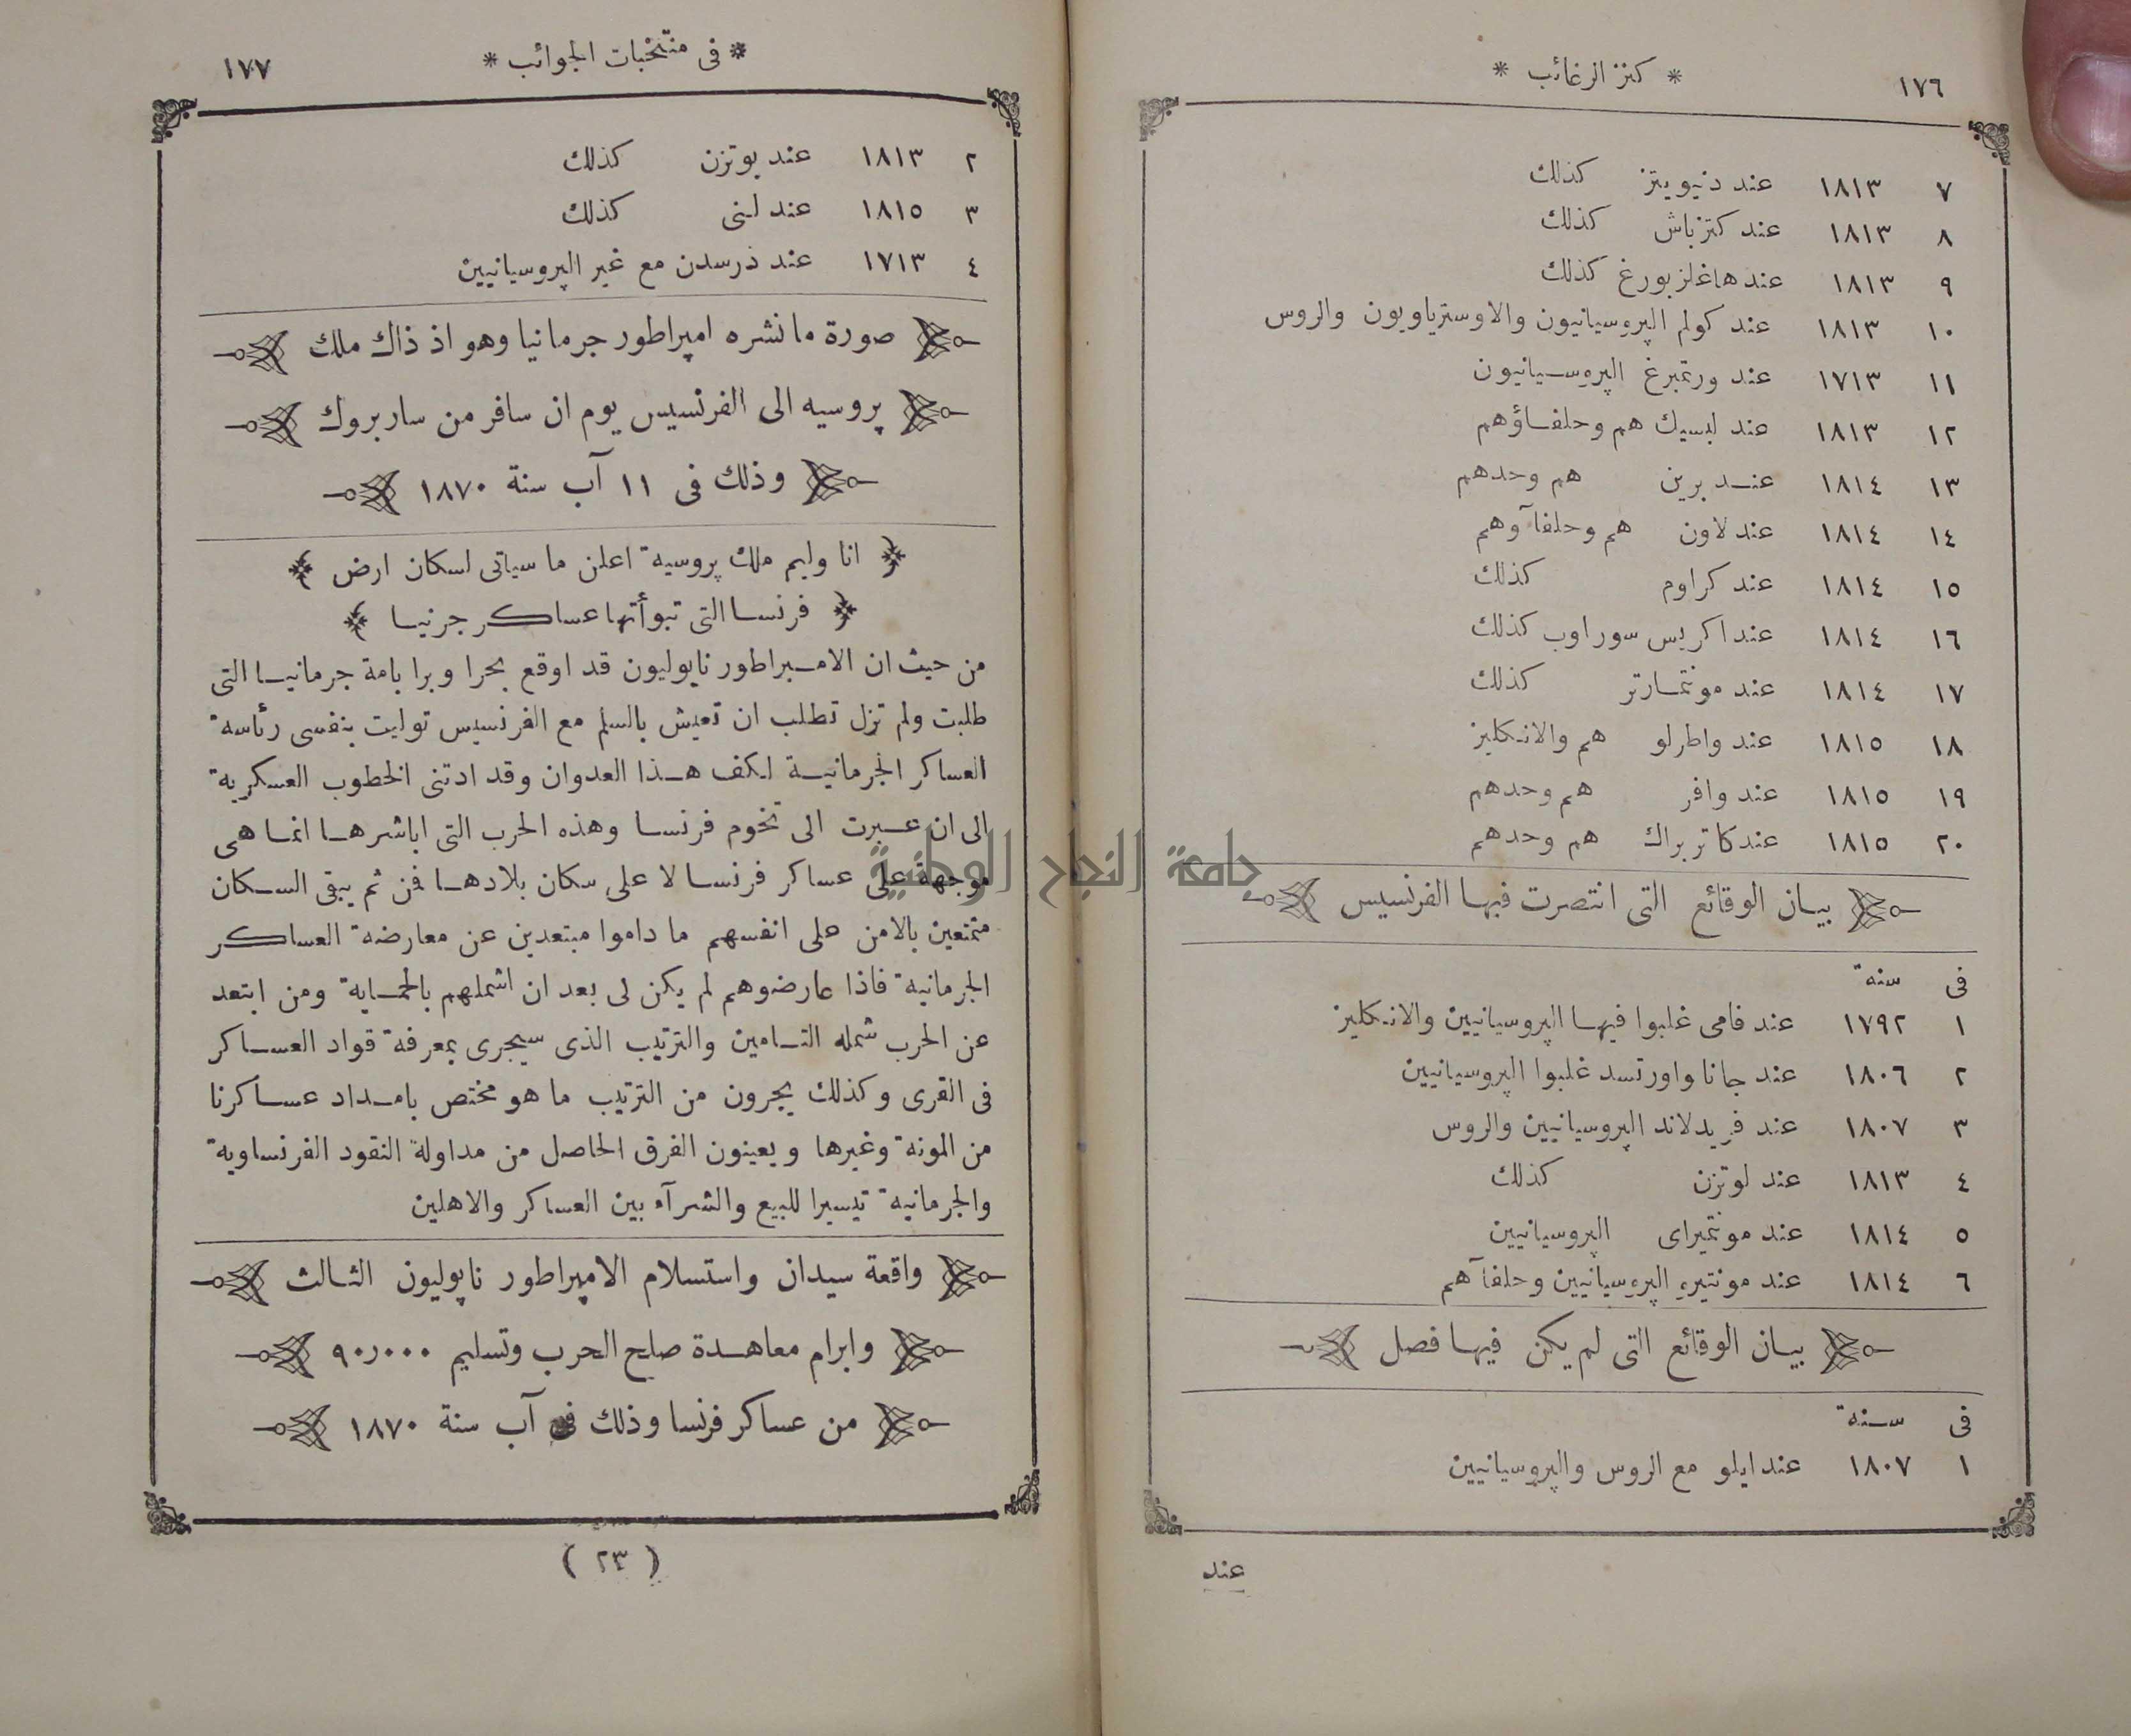 ١٧٦
* كنز الرغائب *
٧ ١٨١٣ عند دنيويتز كذلك
٨ ١٨١٣ عند كتزباش كذلك
٩ ١٨١٣ عند هاغلزبورغ كذلك
١٠ ١٨١٣ عند كولم البروسيانيون والاوسترياويون والروس
١١ ١٧١٣ عند ورتمبرغ البروسيانيون
١٢ ١٨١٣ عند لبسيك هم وحلفاؤهم
١٣ ١٨١٤ عند برين هم وحدهم
١٤ ١٨١٤ عند لاون هم وحلفآوهم
١٥ ١٨١٤ عند كراوم كذلك
١٦ ١٨١٤ عند اكريس سوراوب كذلك
١٧ ١٨١٤ عند مونتمارتر كذلك
١٨ ١٨١٥ عند واطرلو هم والانكليز
١٩ ١٨١٥ عند وافر هم وحدهم
٢٠ ١٨١٥ عند كاتربراك هم وحدهم
بيان الوقائع التى انتصرت فيها الفرنسيس
فى سنة
١ ١٧٩٢ عند فامى غلبوا فيها البروسيانيين والانكليز
٢ ١٨٠٦ عند جانا واورتسد غلبوا البروسيانيين
٣ ١٨٠٧ عند فريدلاند البروسيانيين والروس
٤ ١٨١٣ عند لوتزن كذلك
٥ ١٨١٤ عند مونتميراى البروسيانيين
٦ ١٨١٤ عند مونتيرو البروسيانيين وحلفآهم
بيان الوقائع التى لم يكن فيها فصل
فى سنة
١ ١٨٠٧ عند ايلو مع الروس والبروسيانيين
عند
* فى منتخبات الجوائب *
١٧٧
٢ ١٨١٣ عند بوتزن كذلك
٣ ١٨١٥ عند لنى كذلك
٤ ١٧١٣ عند درسدن مع غير البروسيانيين
صورة ما نشره امپراطور جرمانيا وهو اذ ذاك ملك
پروسيه الى الفرنسيس يوم ان سافر من ساربروك
وذلك فى ١١ آب سنة ١٨٧٠
﴿ انا وليم ملك پروسية اعلن ما سياتى لسكان ارض ﴾
﴿ فرنسا التى تبوأتها عساكر جرنيا ﴾
من حيث ان الامبراطور نابوليون قد اوقع بحرا وبرا بامة جرمانيا التى
طلبت ولم تزل تطلب ان تعيش بالسلم مع الفرنسيس توليت بنفسى رئاسة
العساكر الجرمانية لكف هذا العدوان وقد ادتنى الخطوب العسكرية
الى ان عبرت الى تخوم فرنسا وهذه الحرب التى اباشرها انما هى
موجهة على عساكر فرنسا لا على سكان بلادها فمن ثم يبقى السكان
متمتعين بالامن على انفسهم ما داموا مبتعدين عن معارضة العساكر
الجرمانية فاذا عارضوهم لم يكن لى بعد ان اشملهم بالحماية ومن ابتعد
عن الحرب شمله التامين والترتيب الذى سيجرى بمعرفة قواد العساكر
فى القرى وكذلك يجرون من الترتيب ما هو مختص بامداد عساكرنا
من المونة وغيرها ويعينون الفرق الحاصل من مداولة النقود الفرنساوية
والجرمانية تيسيرا للبيع والشرآء بين العساكر والاهلين
واقعة سيدان واستسلام الامپراطور ناپوليون الثالث
وابرام معاهدة صلح الحرب وتسليم ٩٠٫٠٠٠
من عساكر فرنسا وذلك فى آب سنة ١٨٧٠
( ٢٣ )
جامعة النجاح الوطنية